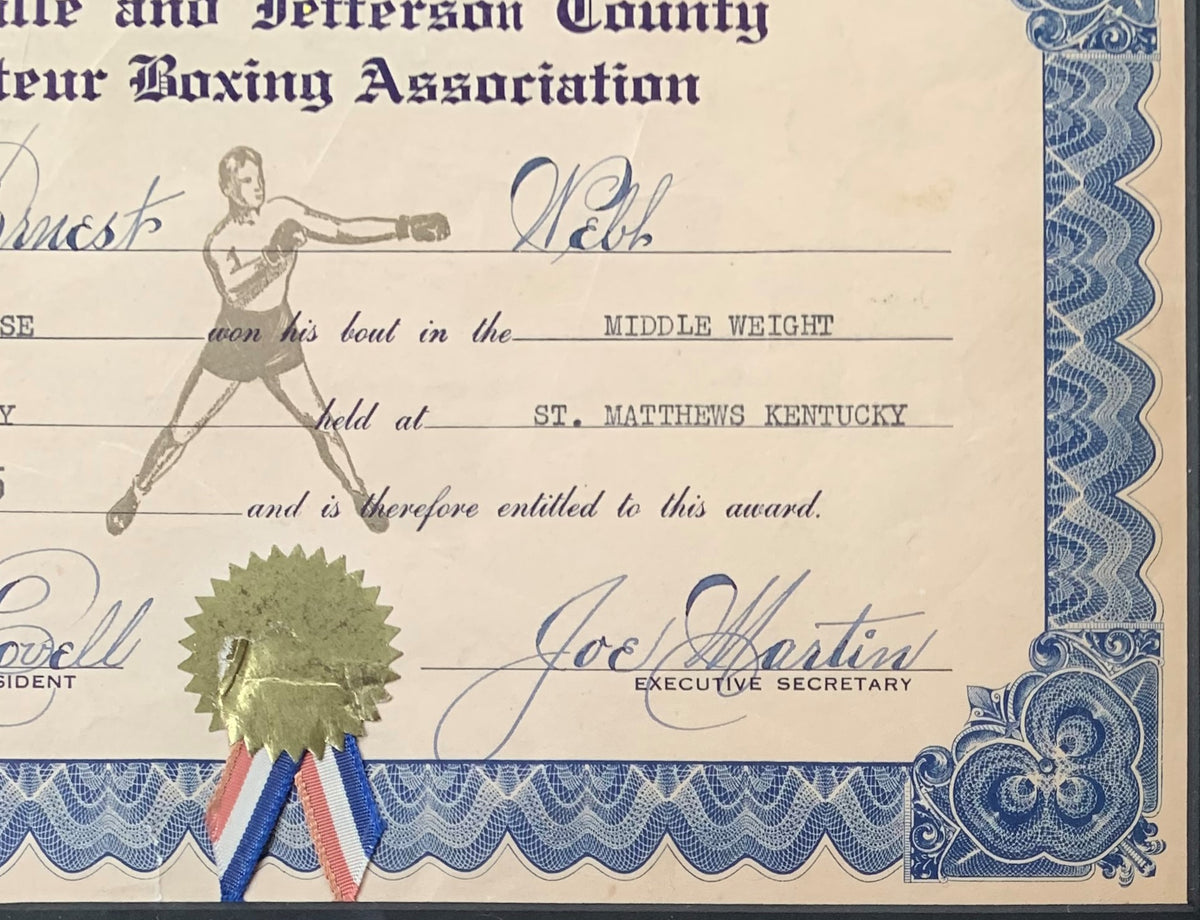 ille and Jefferson County
teur Boxing Association
Ernest Webb
SE won his bout in the MIDDLE WEIGHT
Y held at ST. MATTHEWS KENTUCKY
5 and is therefore entitled to this award.
Lovell Joe Martin
SIDENT EXECUTIVE SECRETARY